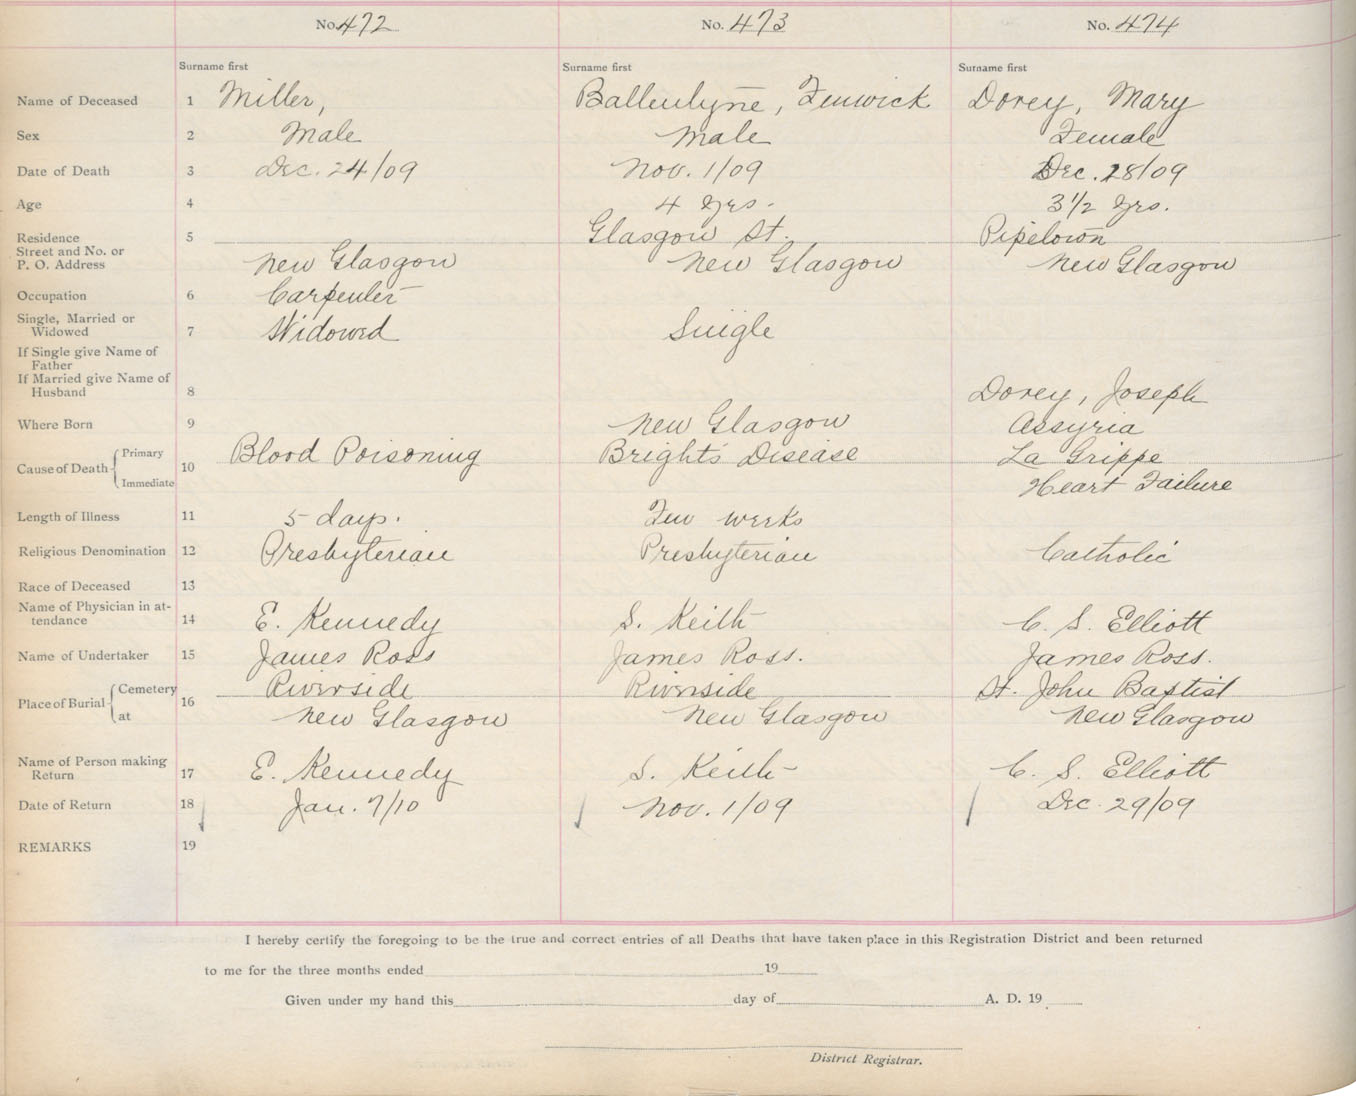 No. 472 No. 473 No. 474
Surname first Surname first Surname first
Name of Deceased 1 Miller, Ballentyne, Fenwick Dorey, Mary
Sex 2 Male Male Female
Date of Death 3 Dec. 24/09 Nov. 1/09 Dec. 28/09
Age 4 4 yrs. 3 1/2 yrs.
Residence 5 Glasgow St. Pipetown
Street and No. or
P. O. Address New Glasgow New Glasgow New Glasgow
Occupation 6 Carpenter
Single, Married or
Widowed 7 Widowed Single
If Single give Name of
Father
If Married give Name of
Husband 8 Dorey, Joseph
Where Born 9 New Glasgow Assyria
Cause of Death Primary 10 Blood Poisoning Bright's Disease La Grippe
Immediate Heart Failure
Length of Illness 11 5 days. Few weeks
Religious Denomination 12 Presbyterian Presbyterian Catholic
Race of Deceased 13
Name of Physician in at-
tendance 14 E. Kennedy S. Keith C. S. Elliott
Name of Undertaker 15 James Ross James Ross. James Ross.
Place of Burial Cemetery 16 Riverside Riverside St. John Baptist
at New Glasgow New Glasgow New Glasgow
Name of Person making
Return 17 E. Kennedy S. Keith C. S. Elliott
Date of Return 18 Jan. 7/10 Nov. 1/09 Dec. 29/09
REMARKS 19
I hereby certify the foregoing to be the true and correct entries of all Deaths that have taken place in this Registration District and been returned
to me for the three months ended 19
Given under my hand this day of A. D. 19
District Registrar.